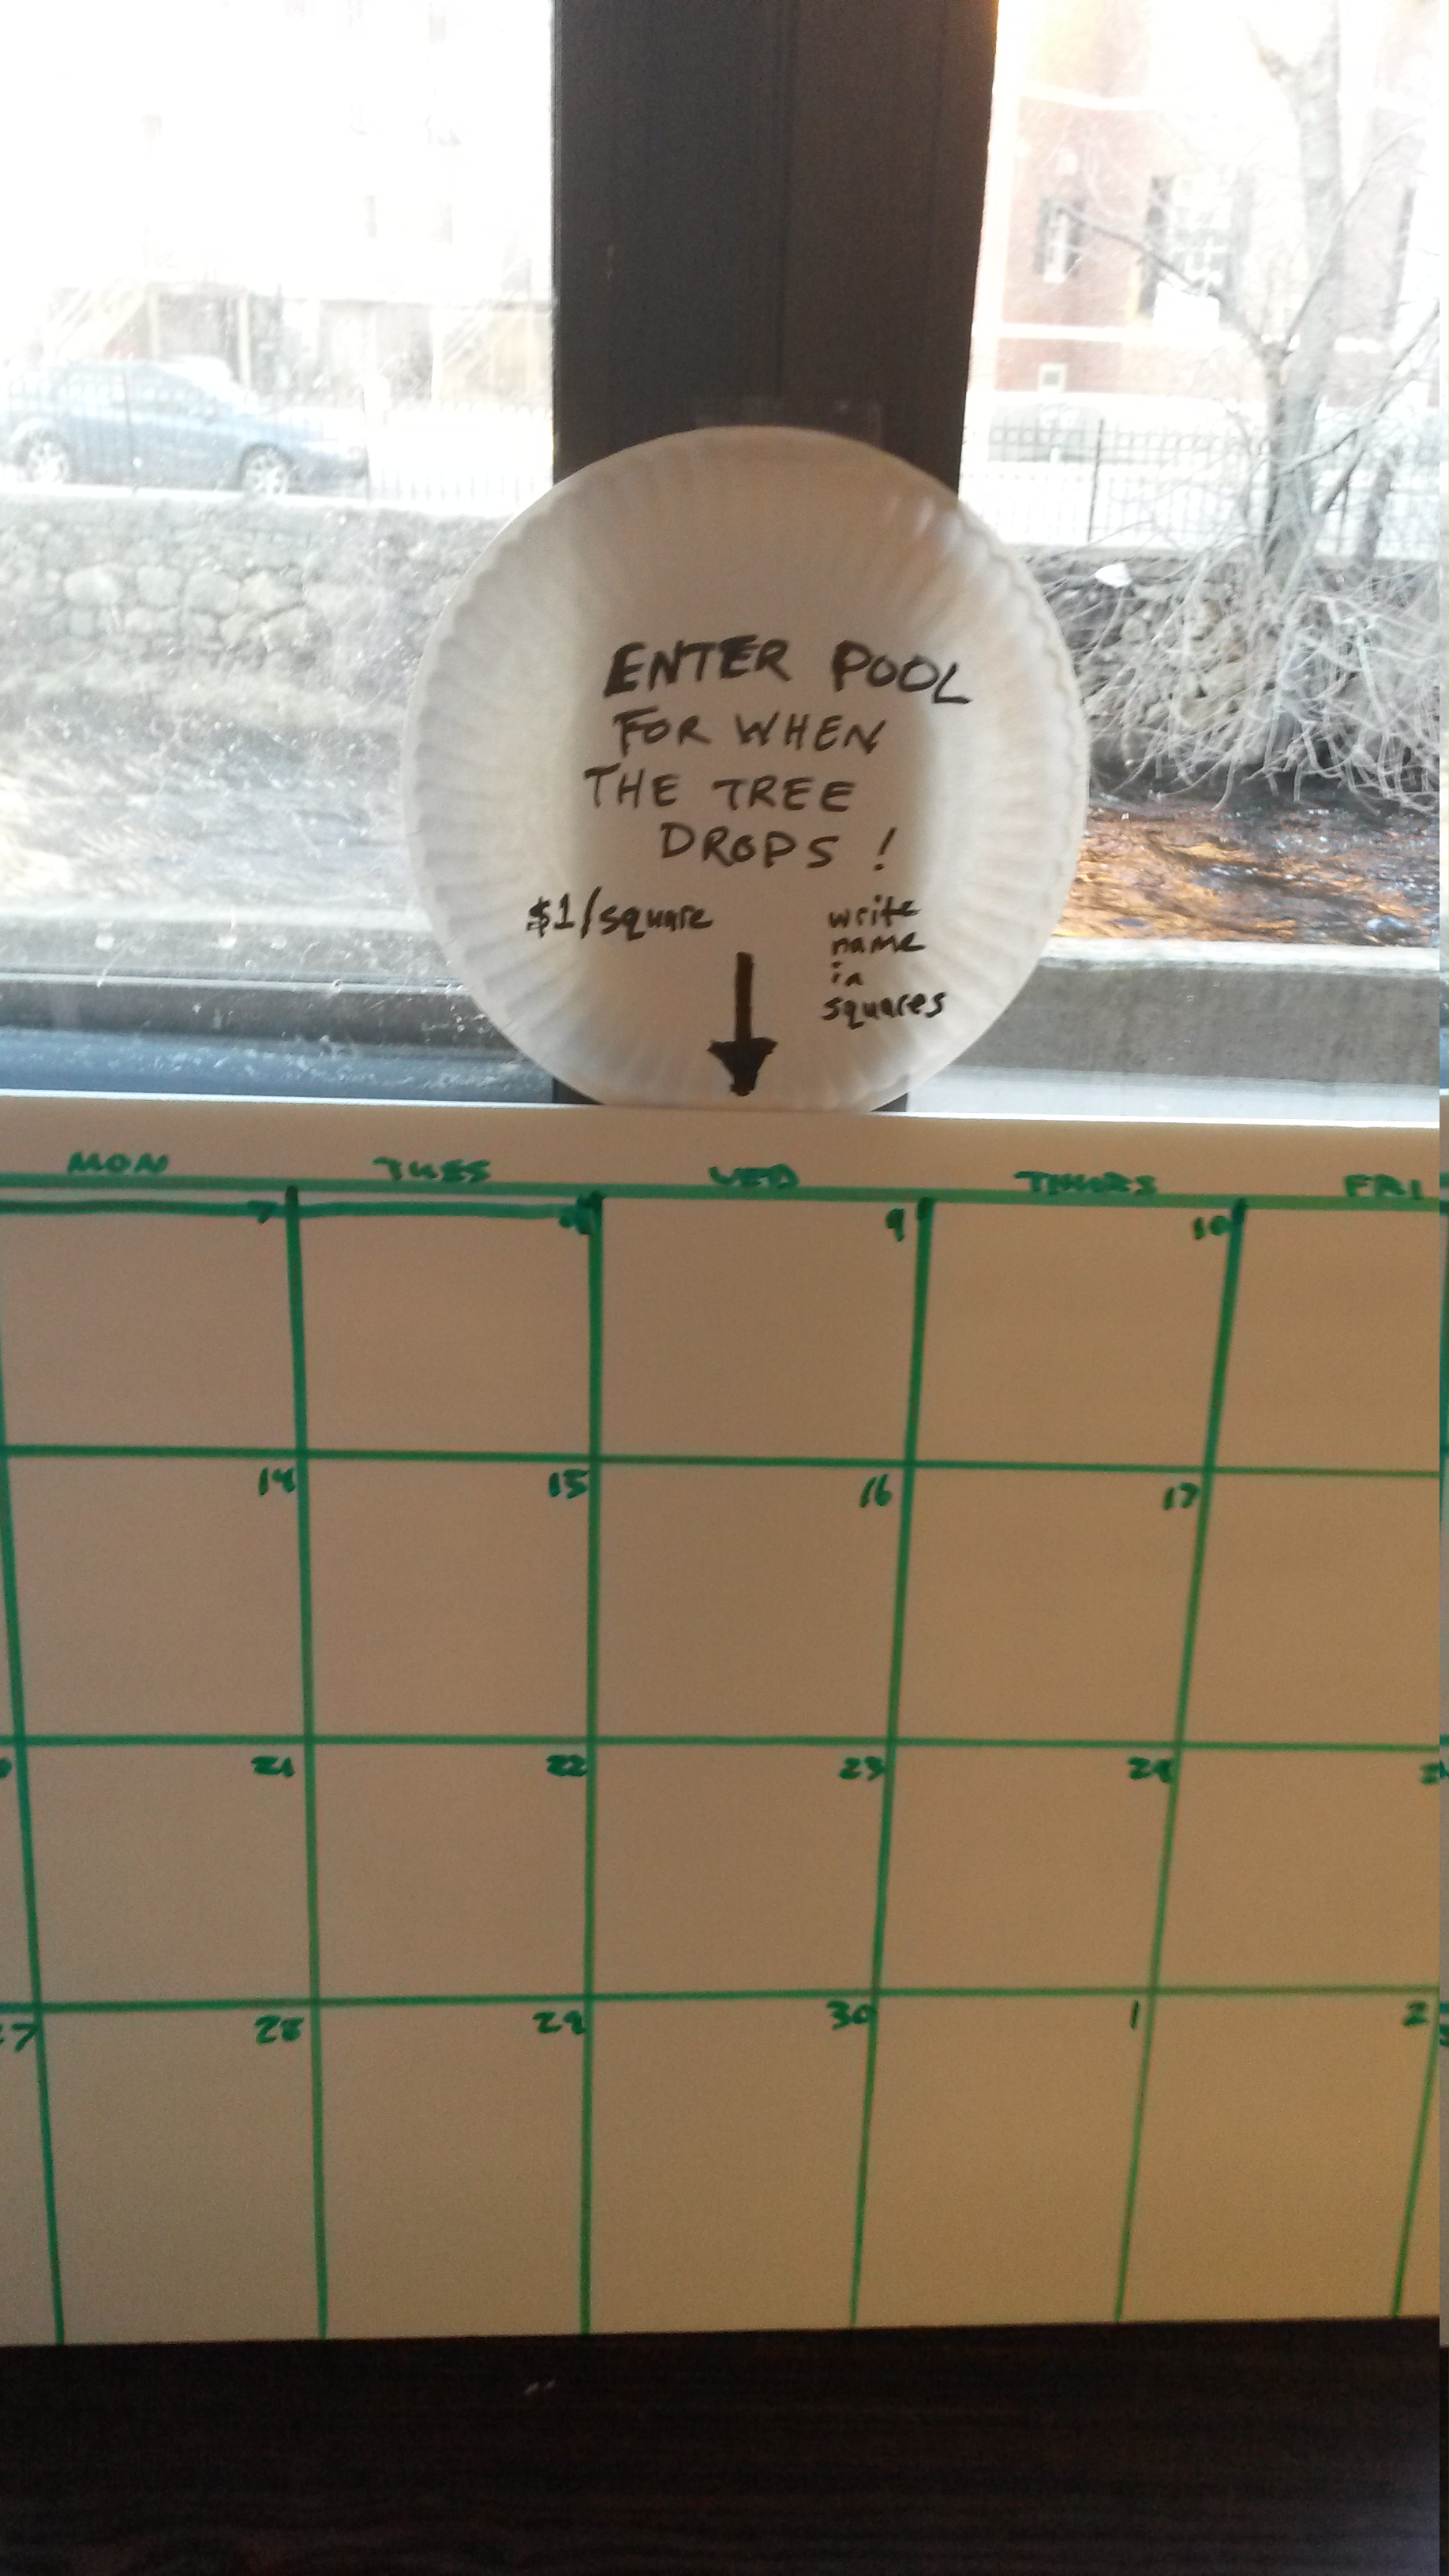 ENTER POOL
FOR WHEN
THE TREE
DROPS!
$1/square
write
name
in
squares
MON TUES WED THURS FRI
7 8 9 10
14 15 16 17
21 22 23 24
27 28 29 30 1 2